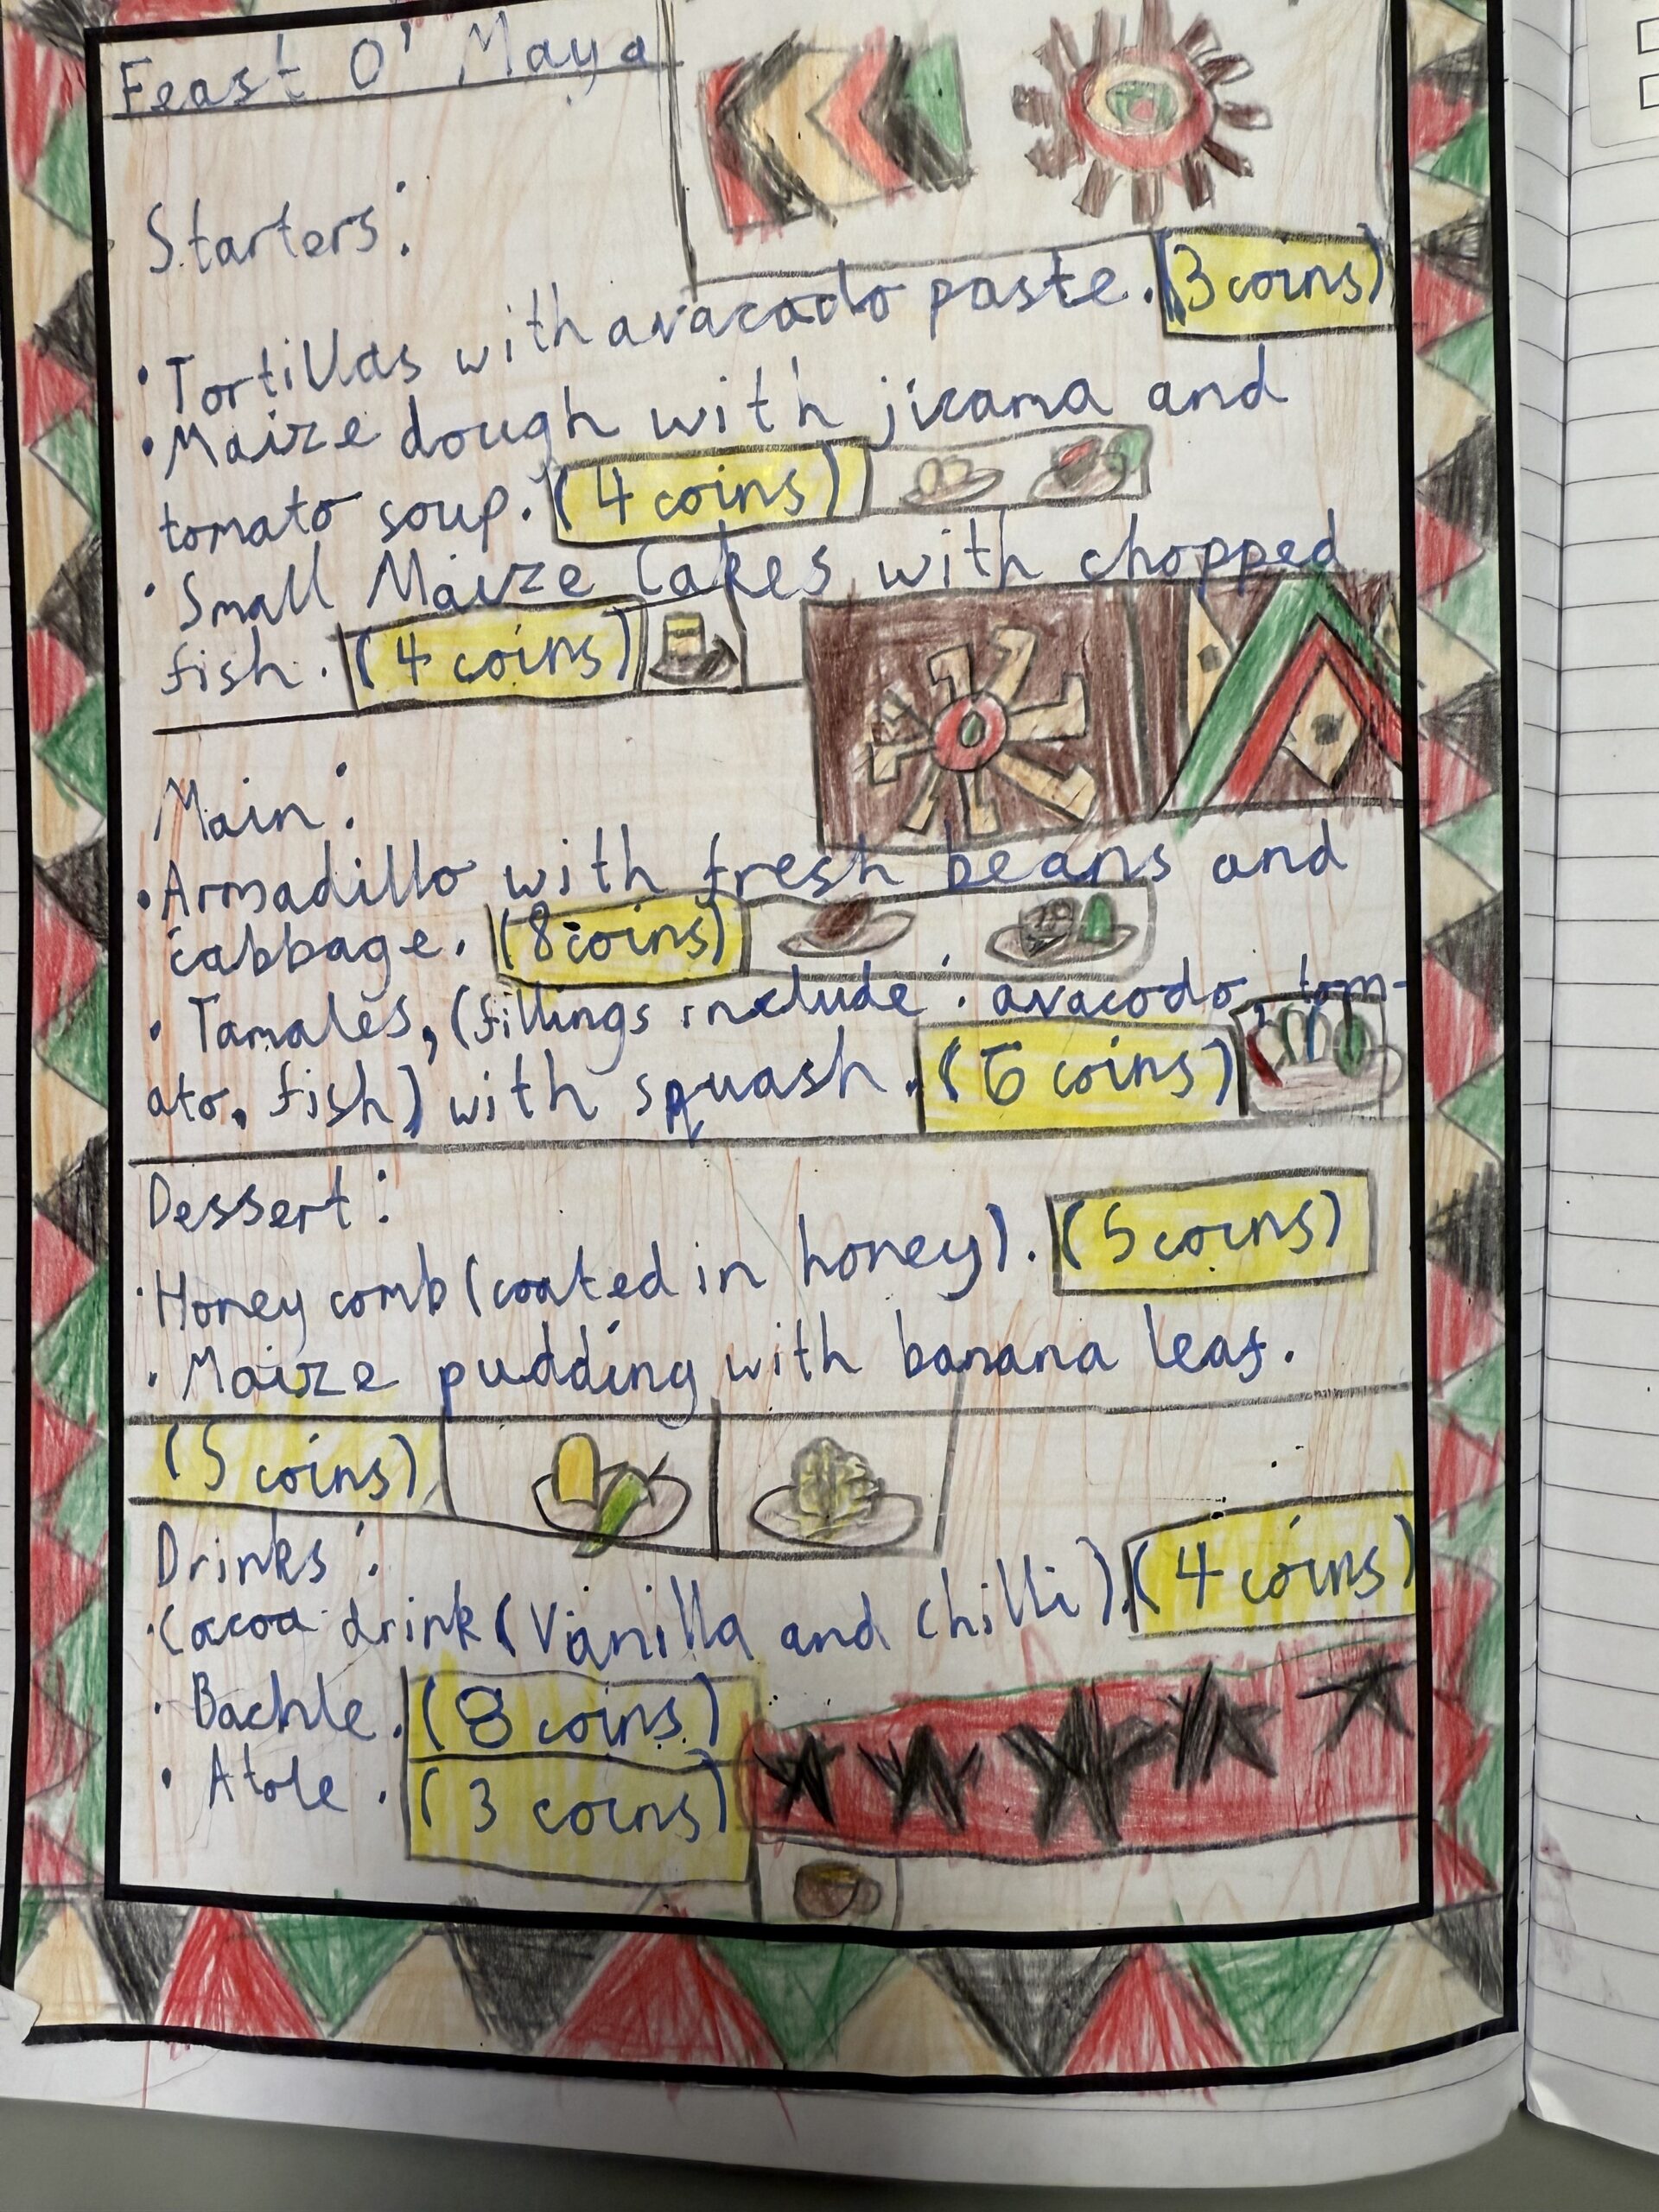 Feast O' Maya
Starters:
• Tortillas with avacado paste. (3 coins)
• Maize dough with jicama and
tomato soup. (4 coins)
• Small Maize Cakes with chopped
fish. (4 coins)
Main:
• Armadillo with fresh beans and
cabbage. (8 coins)
• Tamales, (fillings include: avacodo, tom-
ato, fish) with squash. (6 coins)
Dessert:
• Honey comb (coated in honey). (5 coins)
• Maize pudding with banana leaf.
(5 coins)
Drinks:
• Cocoa drink (Vanilla and chilli). (4 coins)
• Bachle. (8 coins)
• Atole. (3 coins)